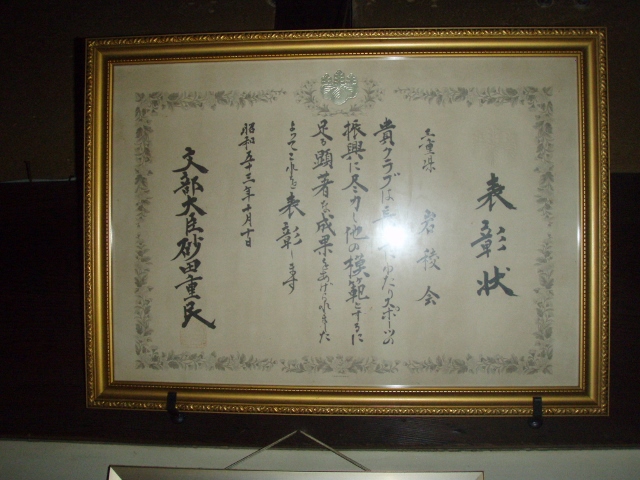 表彰状
三重県 岩稜会
貴クラブは長年にわたりスポーツの
振興に尽力し他の模範とするに
足る顕著な成果をあげられました
よってこれを表彰します
昭和五十三年十月十日
文部大臣砂田重民